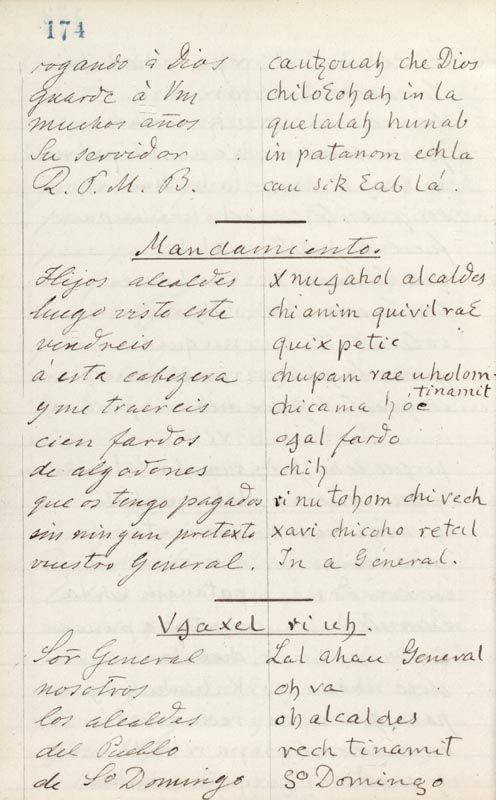 174
rogando à Dios cautzouah che Dios
guarde à Vm chiloɛohah in la
muchos años quelalah hunab
Su servidor . in patanom echla
Q. S. M. B. cau sik ɛab lá.
Mandamiento.
Hijos alcaldes xnugahol alcaldes
luego visto este chianim quivil raɛ
vendreis quixpetic
á esta cabezera chupam rae uholom-tinamit
y me traereis chicama h óc
cien fardos ogal fardo
de algodones chih
que os tengo pagados ri nutohom chivech
sin ningun pretexto xavi chicoho retal
vuestro General. In a General.
Vgaxel ri uh.
Sor̃ General Lal ahau General
nosotros oh va
los alcaldes oh alcaldes
del Pueblo rech tinamit
de Sto Domingo Sto Domingo